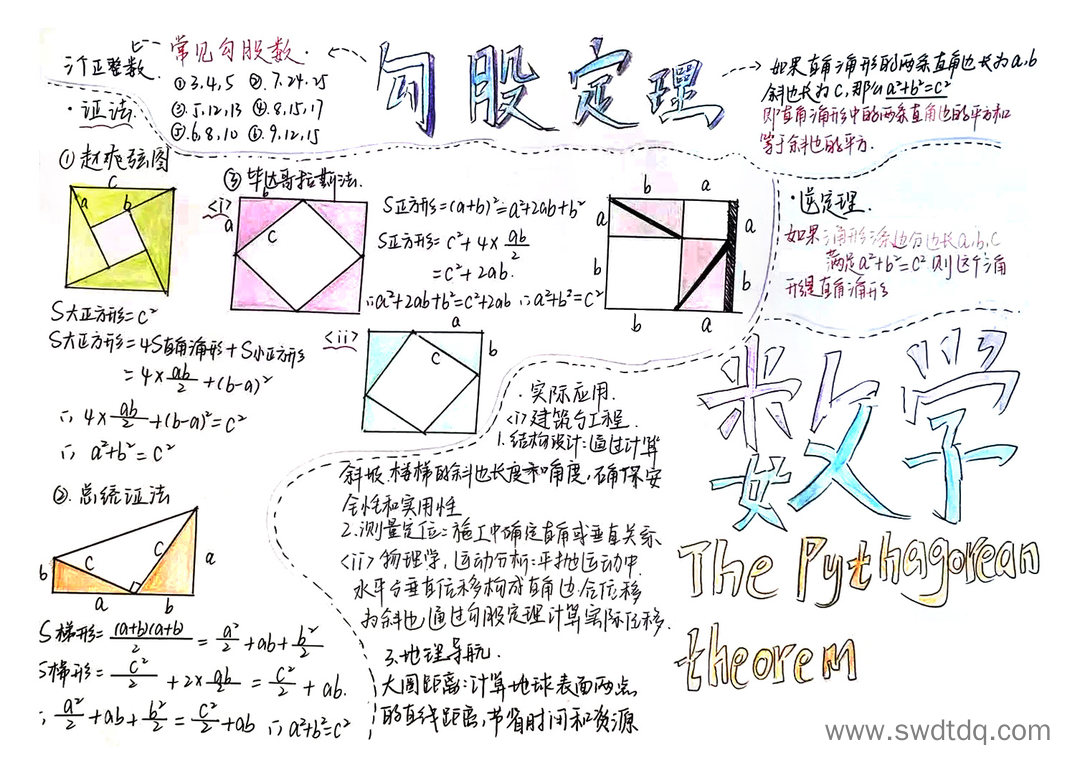 勾股定理
常见勾股数.
三个正整数.
①3,4,5 ②.7.24.25
③.5,12,13 ④.8,15,17
⑤.6,8,10 ⑥.9,12,15
如果直角三角形的两条直角边长为a.b
斜边长为c,那么a²+b²=c²
即直角三角形中的两条直角边的平方和
等于斜边的平方.
·逆定理.
如果三角形三条边分边长a.b.c
满足a²+b²=c²则这个三角
形是直角三角形
·证法.
①赵爽弦图
c
a b
S大正方形=c²
S大正方形=4S直角三角形+S小正方形
=4×ab/2+(b-a)²
∴4×ab/2+(b-a)²=c²
∴a²+b²=c²
②.总统证法
b c c a
a b
S梯形=(a+b)(a+b)/2=a²/2+ab+b²/2
S梯形=c²/2+2×ab/2=c²/2+ab.
∴a²/2+ab+b²/2=c²/2+ab ∴a²+b²=c²
③毕达哥拉斯法.
<i>
b
a
c
S正方形=(a+b)²=a²+2ab+b²
S正方形=c²+4×ab/2
=c²+2ab.
∴a²+2ab+b²=c²+2ab ∴a²+b²=c²
b a
a a
b b
b a
<ii>
a
c b
·实际应用.
<i>建筑与工程.
1.结构设计:通过计算
斜坡.楼梯的斜边长度和角度,确保安
全性和实用性
2.测量定位:施工中确定直角或垂直关系
<ii>物理学,运动分析:平抛运动中.
水平与垂直位移构成直角边.合位移
为斜边,通过勾股定理计算实际位移.
3.地理导航.
大圆距离:计算地球表面两点
的直线距离,节省时间和资源
数学
The Pythagorean
theorem
www.swdtdq.com